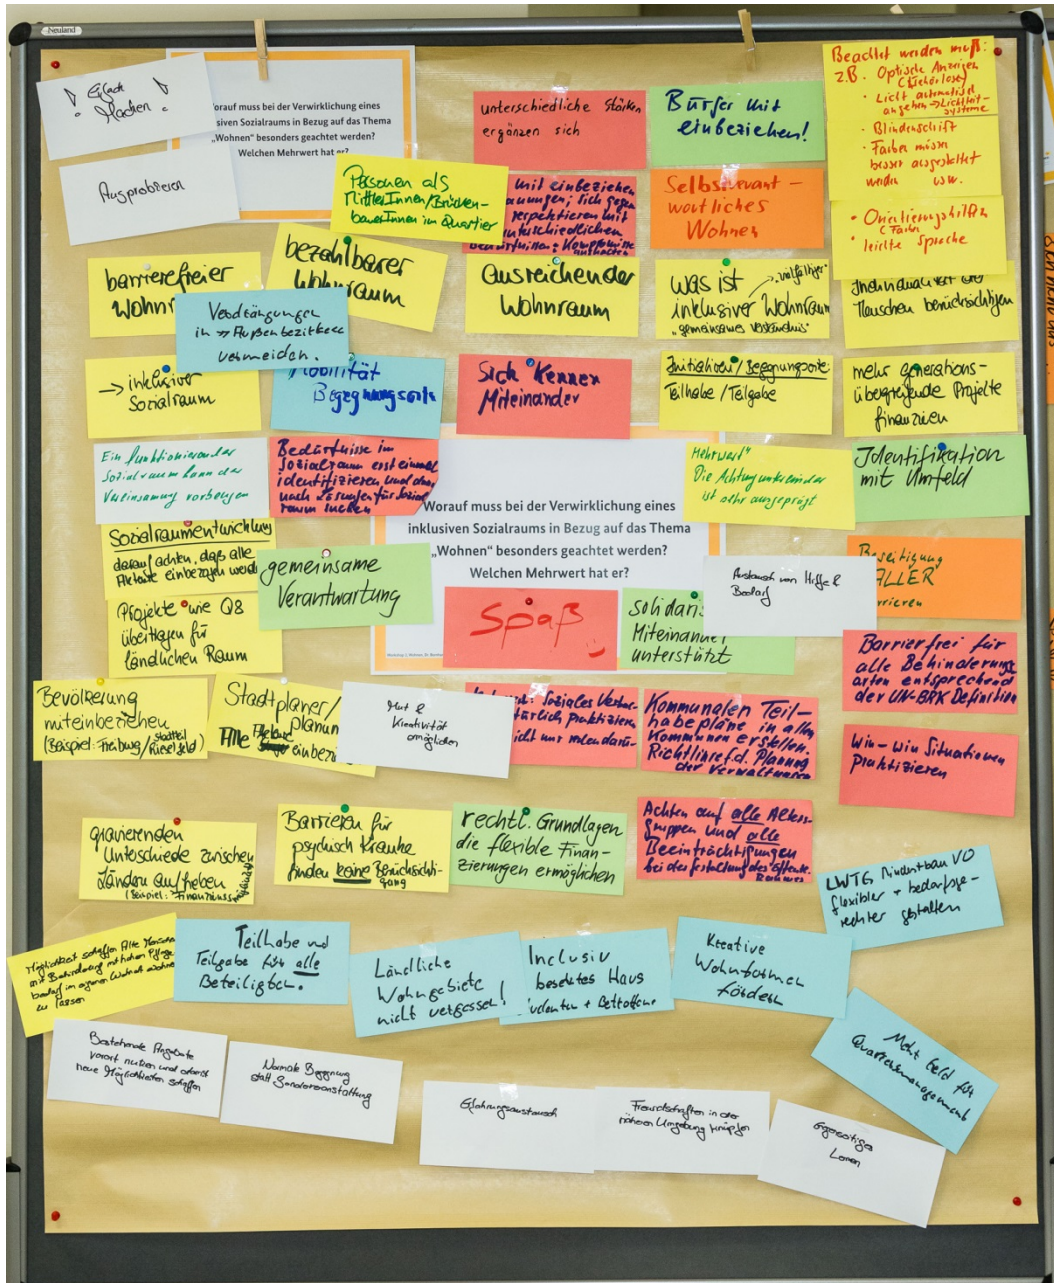 Neuland
! Einfach
Machen !
Ausprobieren
Worauf muss bei der Verwirklichung eines
inklusiven Sozialraums in Bezug auf das Thema
„Wohnen“ besonders geachtet werden?
Welchen Mehrwert hat er?
unterschiedliche Stärken
ergänzen sich
Bürger mit
einbeziehen!
Beachtet werden muß:
z.B. Optische Anzeigen
(Gehörlose)
· Licht automatisch
angehen → Lichtleit-
systeme
· Blindenschrift
· Farben müssen
besser ausgestaltet
werden usw.
· Orientierungshilfen
(Farben
· leichte Sprache
Personen als
MittlerInnen/Brücken-
bauerInnen im Quartier
mit einbeziehen
sich gegen
respektieren mit
unterschiedlichen
Bedürfnissen + Kompromisse
aushalten
Selbstverant-
wortliches
Wohnen
barrierefreier
Wohnr
bezahlbarer
Wohnraum
ausreichender
Wohnraum
was ist „vielfältiger“
inklusiver Wohnraum
„gemeinsames Verständnis“
Individualität der
Menschen berücksichtigen
Verdrängungen
in → Außenbezirke
vermeiden.
→ inklusiver
Sozialraum
Mobilität
Begegnungsorte
Sich Kennen
Miteinander
Initiativen/Begegnungsorte
Teilhabe/Teilgabe
mehr generations-
übergreifende Projekte
finanzieren
Ein funktionierender
Sozialraum kann der
Vereinsamung vorbeugen
Bedürfnisse im
Sozialraum erst einmal
identifizieren und dann
nach Lösungen für Sozial
raum suchen
Worauf muss bei der Verwirklichung eines
inklusiven Sozialraums in Bezug auf das Thema
„Wohnen“ besonders geachtet werden?
Welchen Mehrwert hat er?
Mehrwert"
Die Achtung untereinander
ist sehr ausgeprägt
Identifikation
mit Umfeld
Sozialraumentwicklung
darauf achten, daß alle
Akteure einbezogen werde
gemeinsame
Verantwortung
Austausch von Hilfe &
Bedarf
Beseitigung
ALLER
Barrieren
Projekte wie Q8
übertragen für
ländlichen Raum
Spaß
solidaris
Miteinander
unterstützt
Barrierfrei für
alle Behinderungs
arten entsprechend
der UN-BRK Definition
Bevölkerung
miteinbeziehen
(Beispiel: Freiburg/Stadtteil
Rieselfeld)
Stadtplaner/
planun
Alle einbezie
Mut &
Kreativität
ermöglichen
Soziales Verhal
türlich praktizieren
icht nur
Kommunalen Teil-
habepläne in allen
Kommunen erstellen.
Richtlinie f.d. Planung
der Verwaltungen
Win-Win Situationen
praktizieren
gravierenden
Unterschiede zwischen
Ländern aufheben
(Beispiel: Finanzierung
Barrieren für
psychisch Kranke
finden keine Berücksichti-
gung
rechtl. Grundlagen
die flexible Finan-
zierungen ermöglichen
Achten auf alle Alters-
gruppen und alle
Beeinträchtigungen
bei der Gestaltung des öffentl.
Raumes
LWTG Mindestbau VO
flexibler + bedarfsge-
rechter gestalten
Möglichkeit schaffen Alte Menschen
mit Behinderung mit hohem Pflege
bedarf im eigenen Wohnen
zu lassen
Teilhabe und
Teilgabe für alle
Beteiligten.
Ländliche
Wohngebiete
nicht vergessen!
Inclusiv
besetztes Haus
Studenten + Betroffene
Kreative
Wohnformen
fördern
Mehr Geld für
Quartiersmanagement
Bestehende Angebote
vorort nutzen und dadurch
neue Möglichkeiten schaffen
Normale Begegnung
statt Sonderveranstaltung
Erfahrungsaustausch
Freundschaften in der
näheren Umgebung knüpfen
Gegenseitiges
Lernen